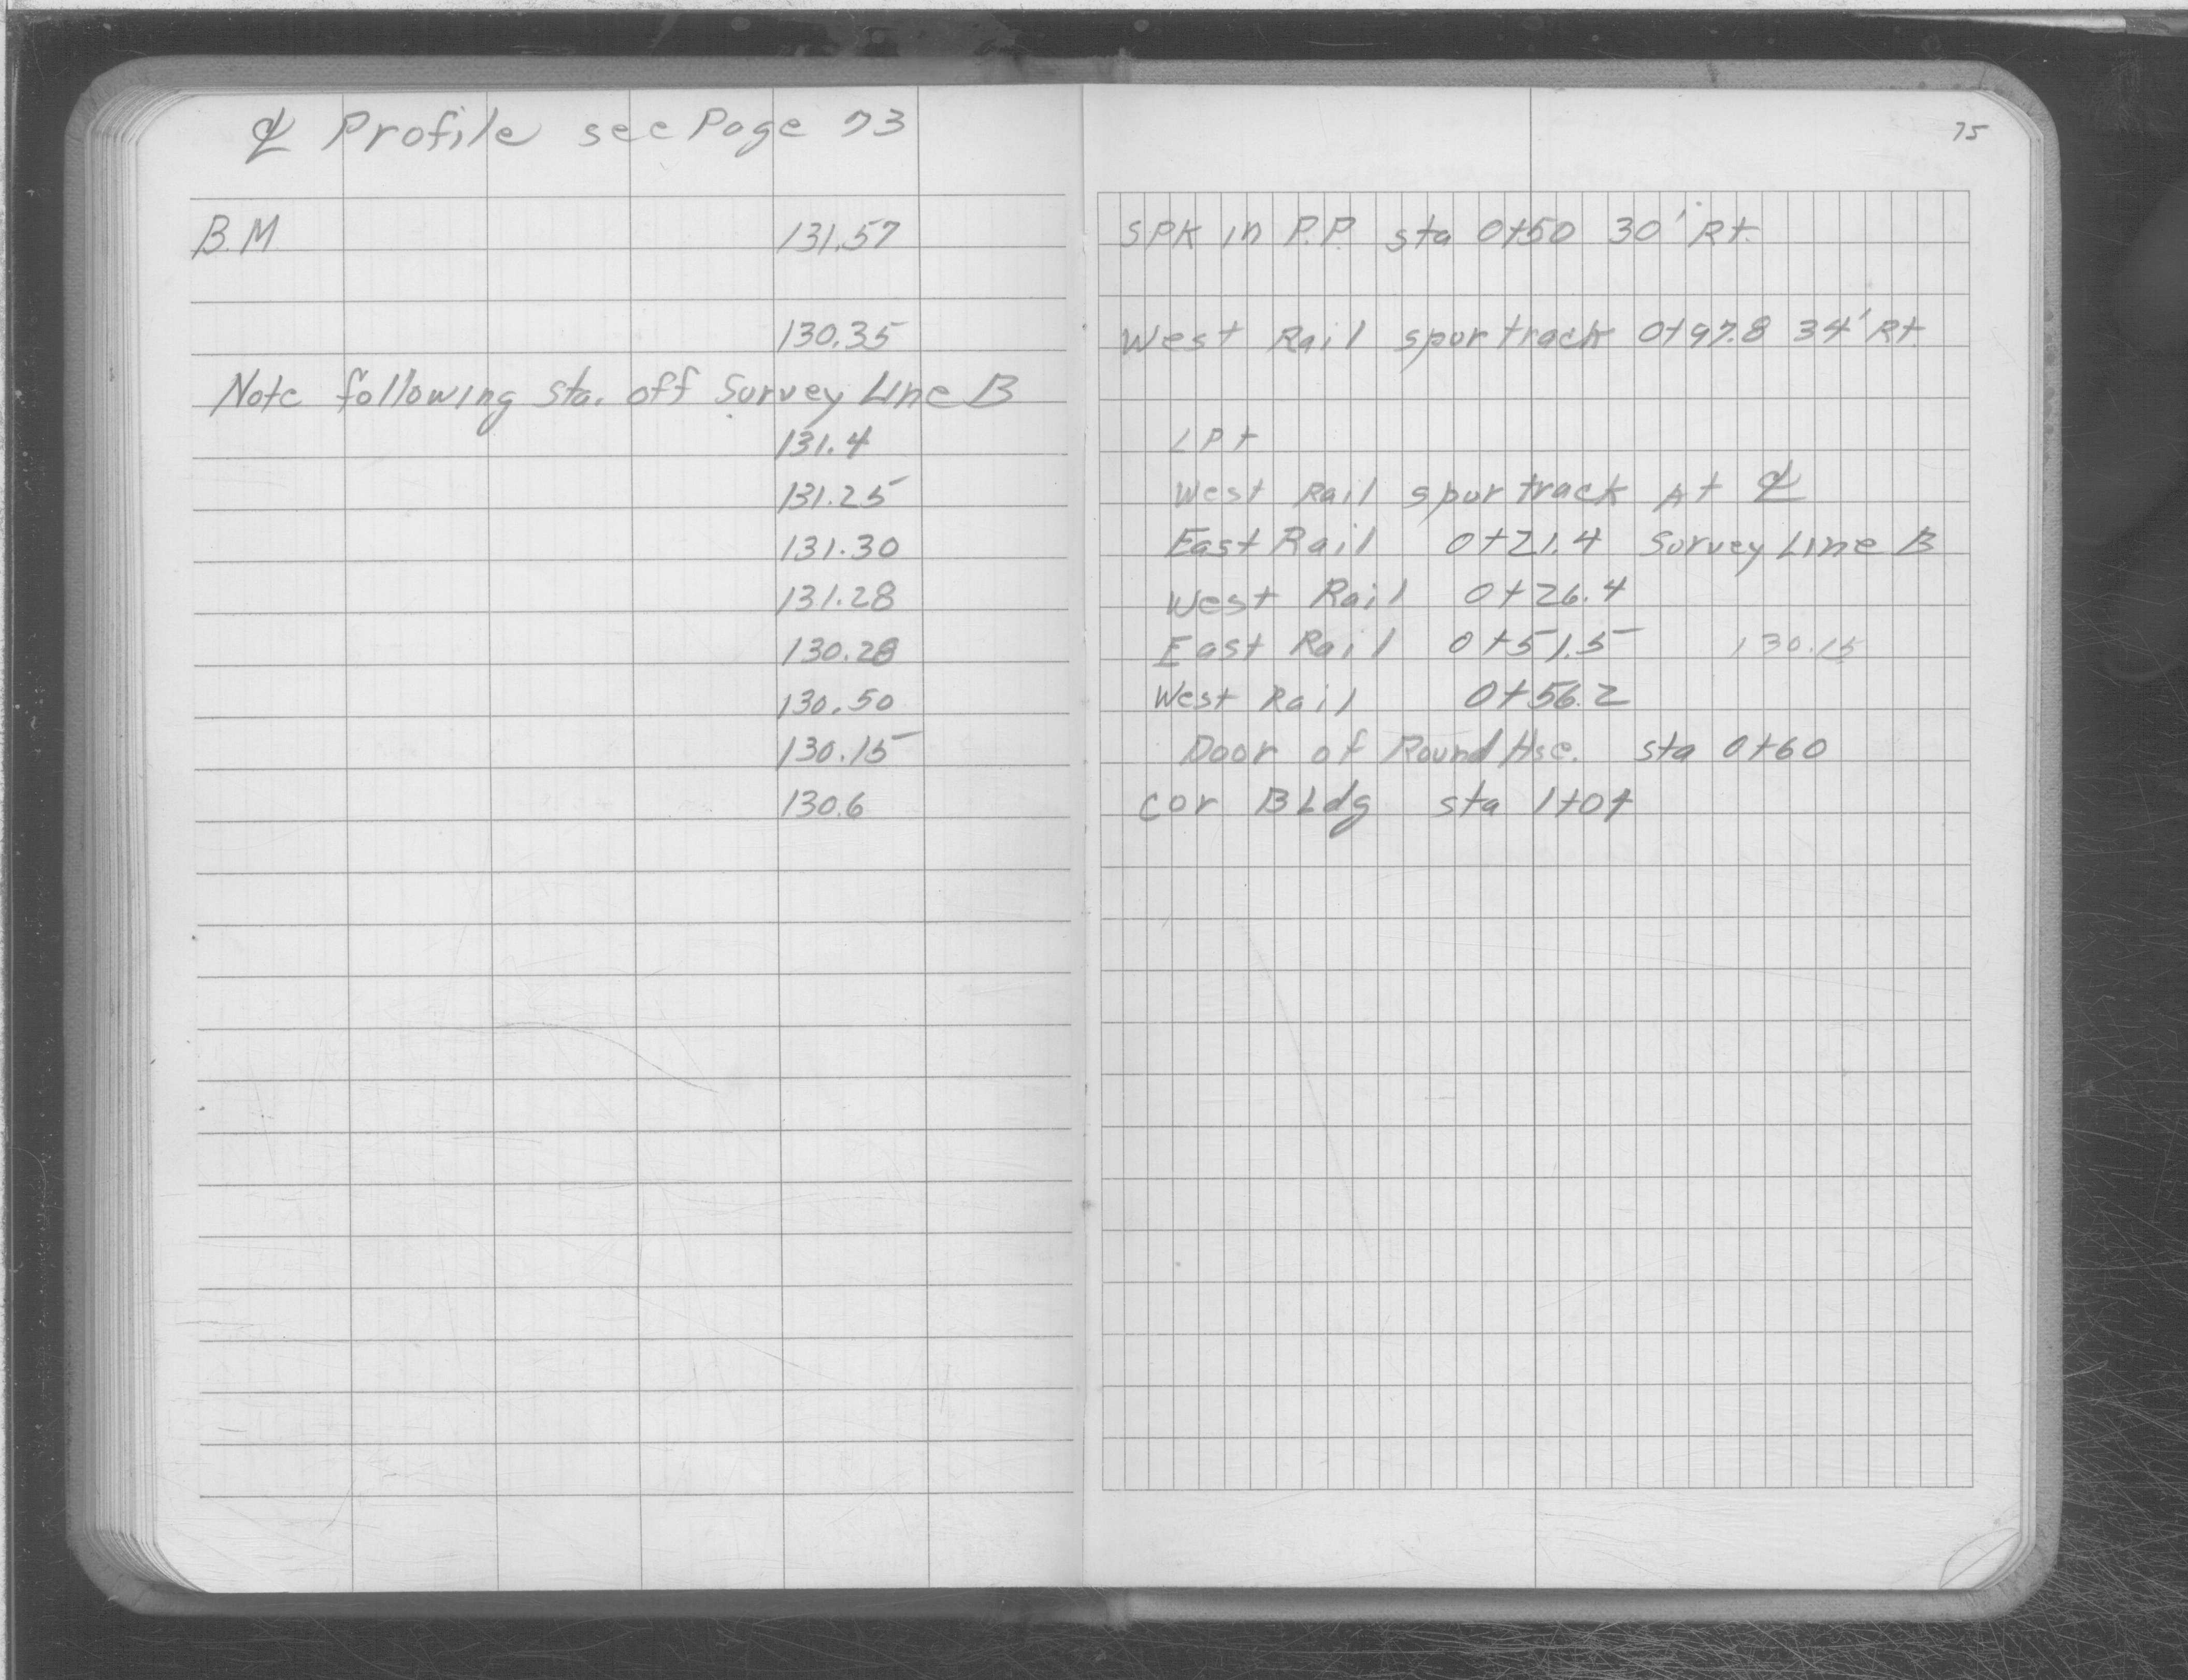 ℄ Profile see Page 73
75
B.M 131.57 SPK in P.P. sta 0+50 30' Rt.
130.35 West Rail spur track 0+97.8 34' Rt
Note following sta. off Survey Line B
131.4 LPt
131.25 West Rail spur track At ℄
131.30 East Rail 0+21.4 Survey Line B
131.28 West Rail 0+26.4
130.28 East Rail 0+51.5 130.15
130.50 West Rail 0+56.2
130.15 Door of Round Hse. sta 0+60
130.6 Cor BLdg sta